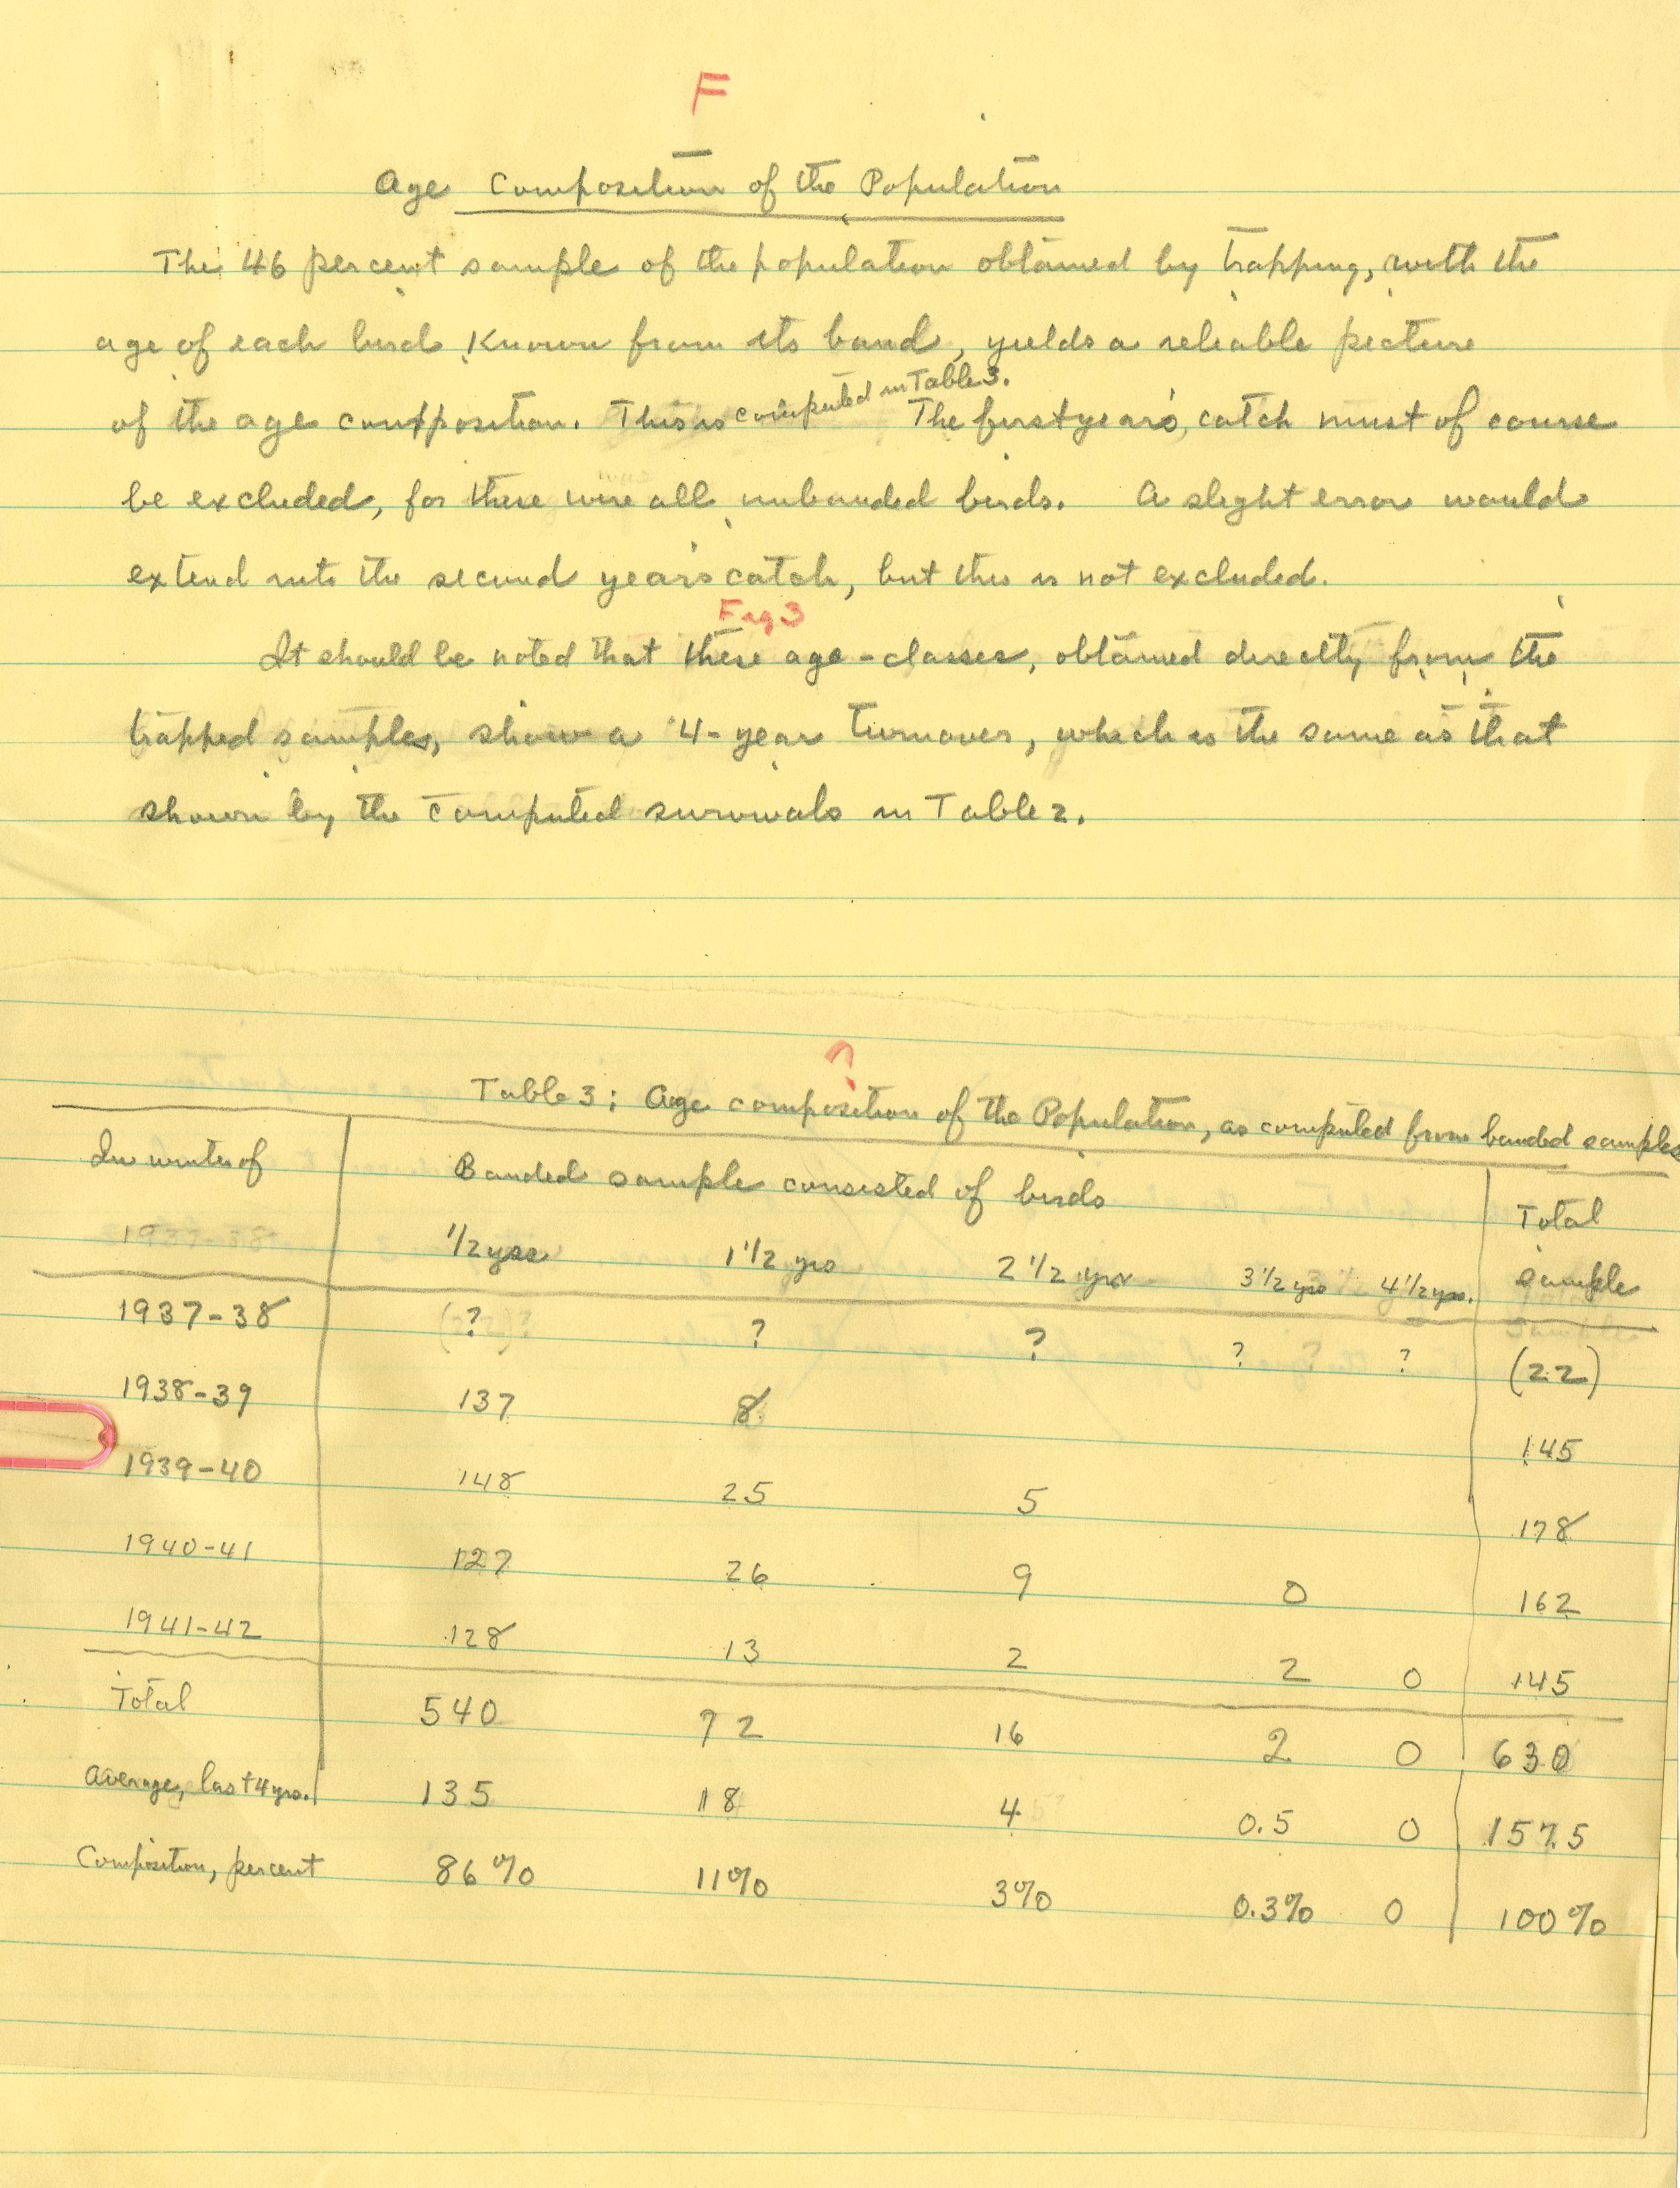 F
Age Composition of the Population
The 46 percent sample of the population obtained by trapping, with the
age of each bird known from its band, yields a reliable picture
of the age composition. This is computed in Table 3. The first year's catch must of course
be excluded, for these were all unbanded birds. A slight error would
extend into the second year's catch, but this is not excluded.
Fig 3
It should be noted that these age-classes, obtained directly from the
trapped samples, show a 4-year turnover, which is the same as that
shown by the computed survivals in Table 2.
?
Table 3: Age composition of the Population, as computed from banded samples
In winter of Banded sample consisted of birds Total sample
1937-38
1/2 yrs 1 1/2 yrs 2 1/2 yrs 3 1/2 yrs 4 1/2 yrs.
1937-38 ? ? ? ? ? (22)
1938-39 137 8 145
1939-40 148 25 5 178
1940-41 127 26 9 0 162
1941-42 128 13 2 2 0 145
Total 540 72 16 2 0 630
Average, last 4 yrs. 135 18 4 0.5 0 157.5
Composition, percent 86% 11% 3% 0.3% 0 100%